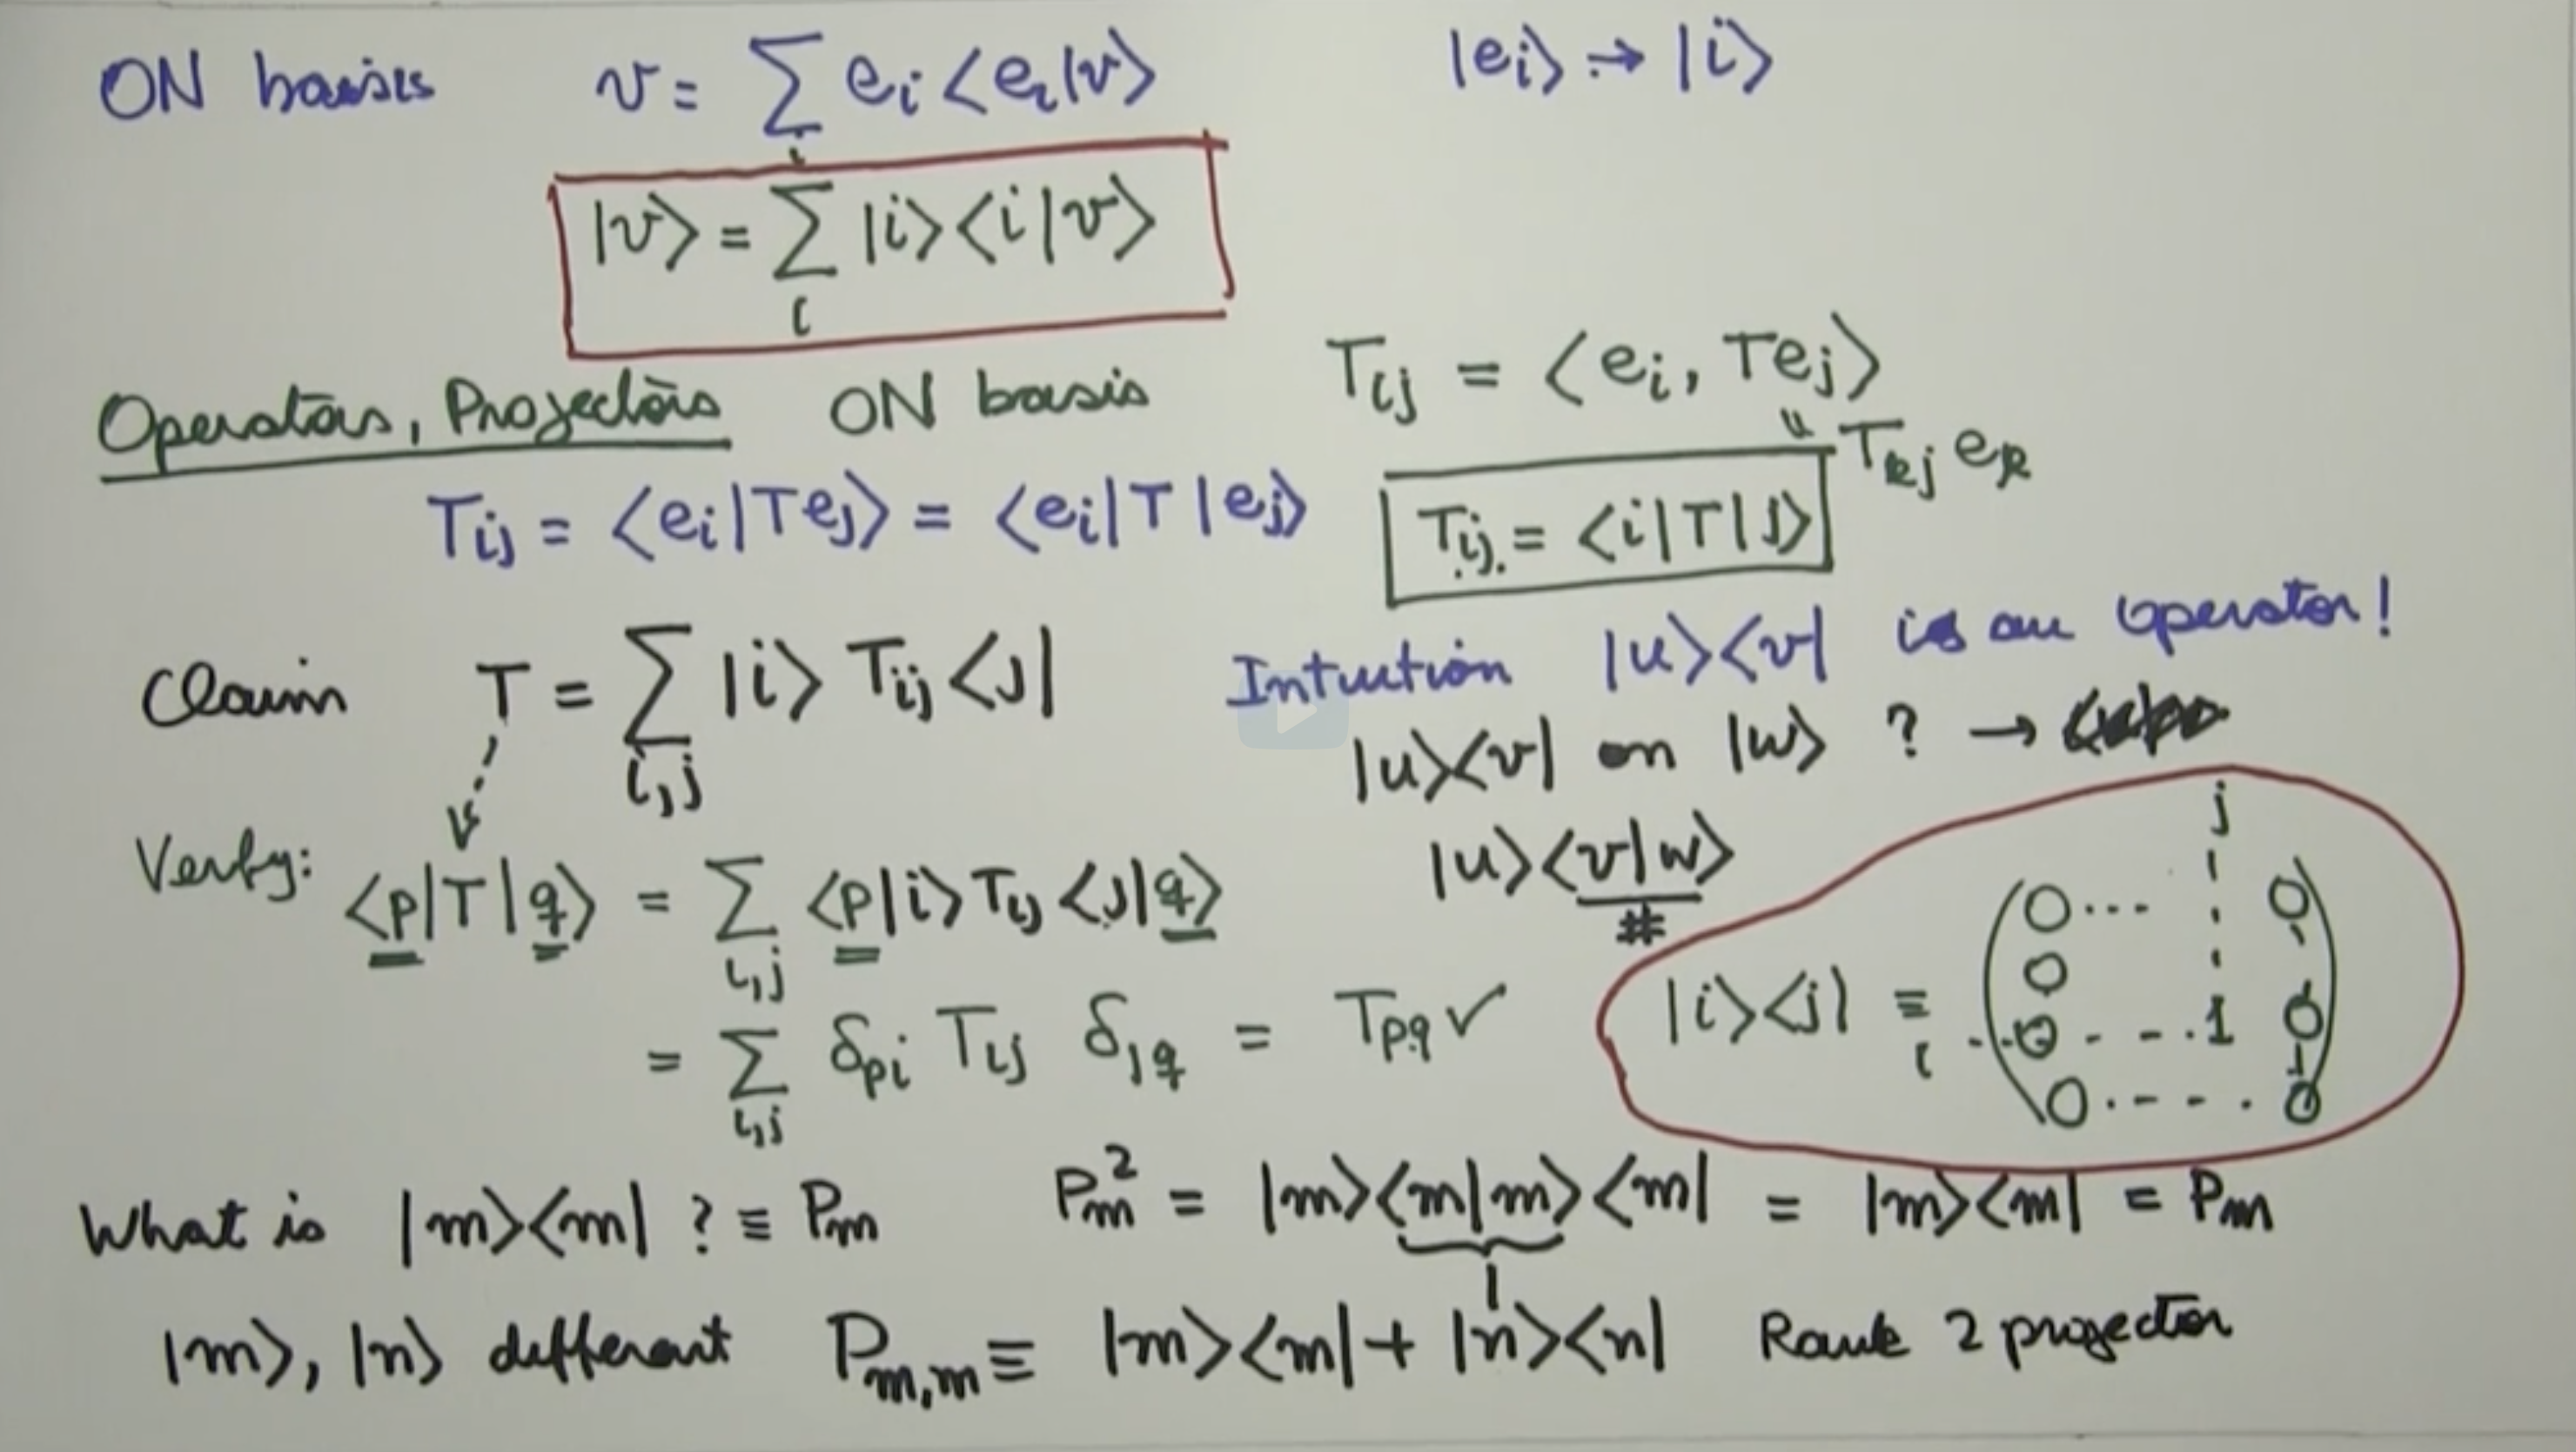 ON basis v = ∑_i e_i <e_i|v> |e_i> → |i>
|v> = ∑_i |i><i|v>
Operators, Projectors ON basis T_ij = <e_i, Te_j>
T_kj e_k
T_ij = <e_i|Te_j> = <e_i|T|e_j> T_ij = <i|T|j>
Claim T = ∑_{i,j} |i> T_ij <j| Intuition |u><v| is an operator!
|u><v| on |w> ? →
Verify: <p|T|q> = ∑_{i,j} <p|i> T_ij <j|q> |u><v|w>
#
= ∑_{i,j} δ_pi T_ij δ_jq = T_pq ✓
|i><j| ≡
j
0 ... 0
0
i ..0 - - . 1 0
0 . - - . 0
What is |m><m| ? ≡ P_m P_m^2 = |m><m|m><m| = |m><m| = P_m
1
|m>, |n> different P_{m,m} ≡ |m><m| + |n><n| Rank 2 projector